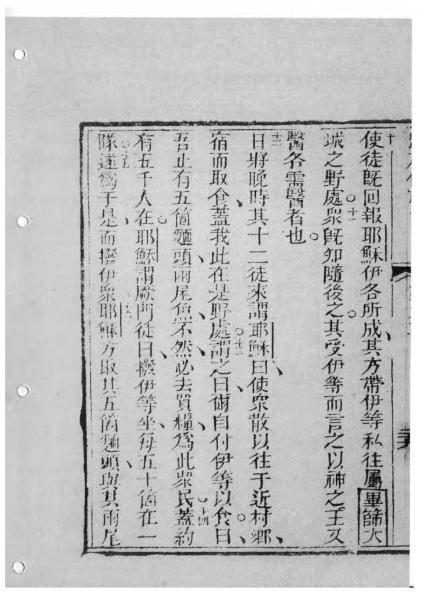 十使徒既回報耶穌伊各所成其方帶伊等私往屬畢篩大
城之野處○十一衆既知隨後之其受伊等而言之以神之王又
醫各需醫者也○
十二日將晚時其十二徒來謂耶穌曰使衆散以往于近村鄉、
宿而取食蓋我此在是野處○十三謂之曰爾自付伊等以食曰、
吾止有五箇麵頭兩尾魚不然必去買糧爲此衆民○十四蓋約
有五千人在耶穌謂厥門徒曰撥伊等坐每五十箇在一
隊○十五遂爲于是而撥伊衆○耶穌方取其五箇麵頭與其兩尾